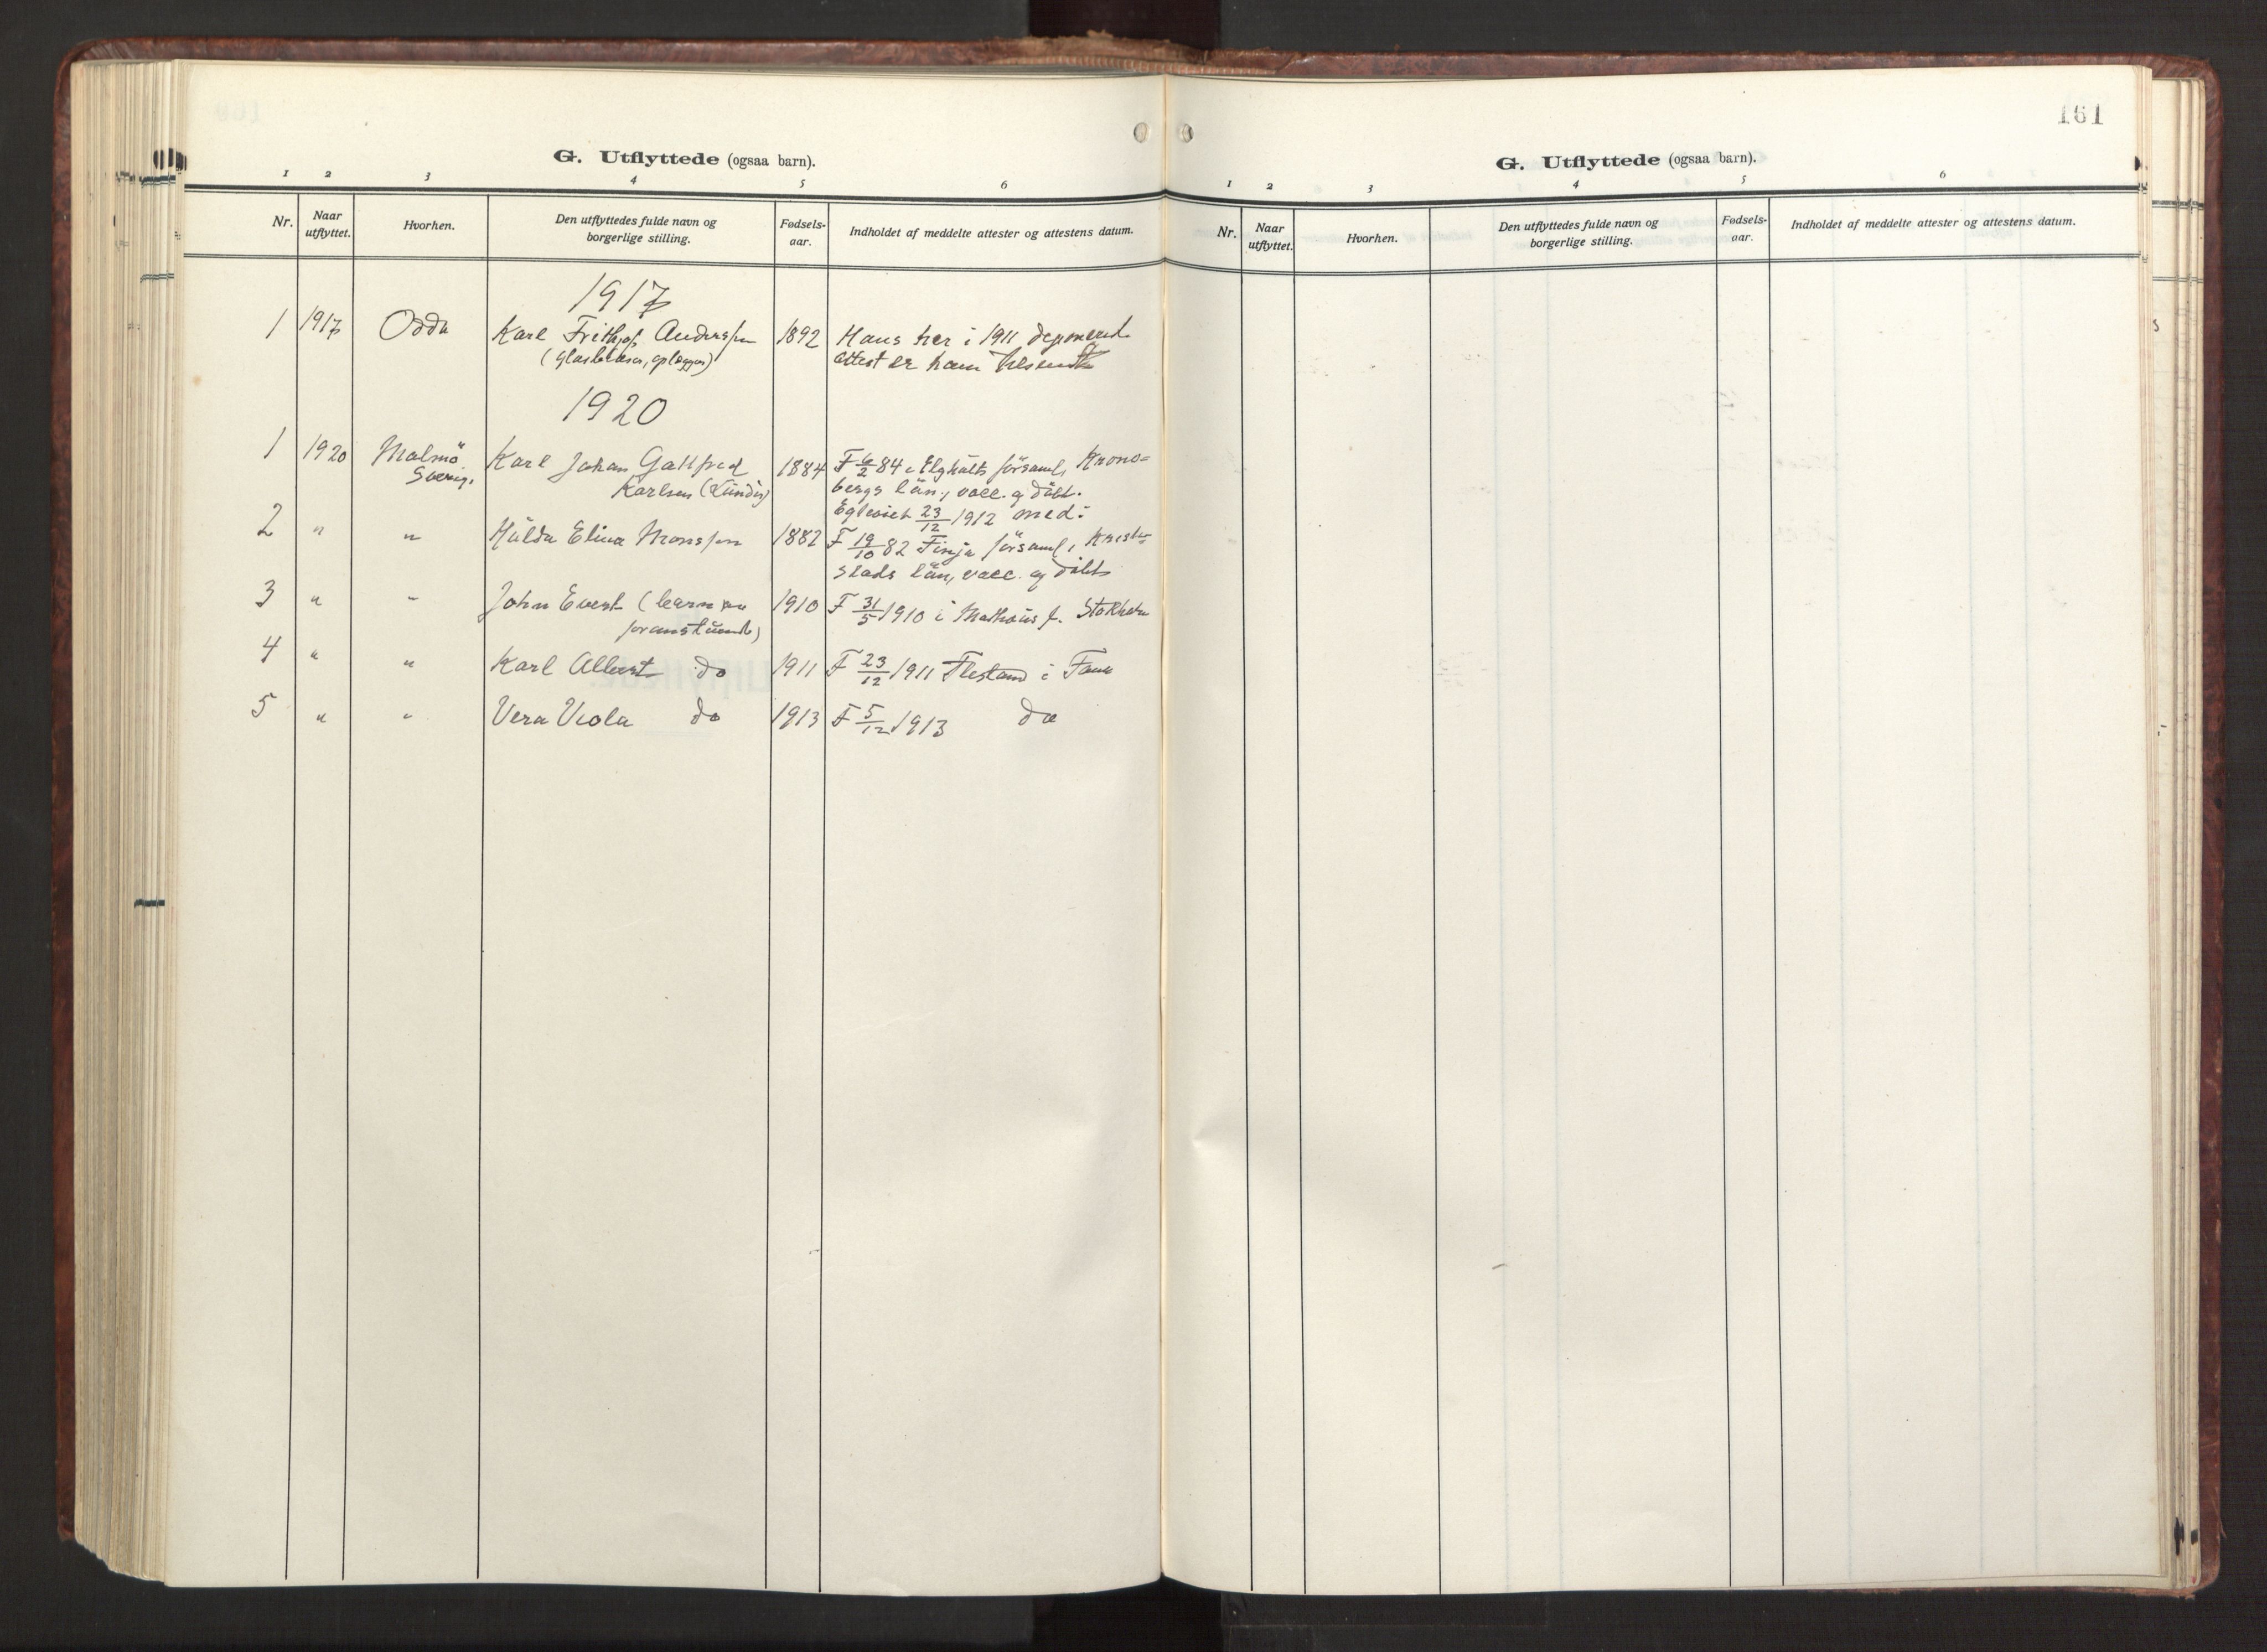 G. Utflyttede (ogsaa barn).
1 2 3 4 5 6
Nr. Naar utflyttet. Hvorhen. Den utflyttedes fulde navn og borgerlige stilling. Fødsels-aar. Indholdet af meddelte attester og attestens datum.
1917
1 1917 Odda Karl Frithjof Anderssen 1892 Hans her i 1911 deponerede
(glasblæser, oplægger) attest er ham tilsendt
1920
1 1920 Malmö Karl Johan Gottfred 1884 F 6/2 84 i Elghults församl, Krono=
Sverig. Karlsen bergs län, vacc. og döbt.
Egteviet 23/12 1912 med:
2 " " Hulda Elina Monssen 1882 F 19/10 82 Finja församl, Krist-
stads län, vacc. og döbt
3 " " John Evert (barn av 1910 F 31/5 1910 i f. Stokholm
foranstående)
4 " " Karl Albert do 1911 F 23/12 1911 i
5 " " Vera Viola do 1913 F 5/12 1913 do
161
G. Utflyttede (ogsaa barn).
1 2 3 4 5 6
Nr. Naar utflyttet. Hvorhen. Den utflyttedes fulde navn og borgerlige stilling. Fødsels-aar. Indholdet af meddelte attester og attestens datum.